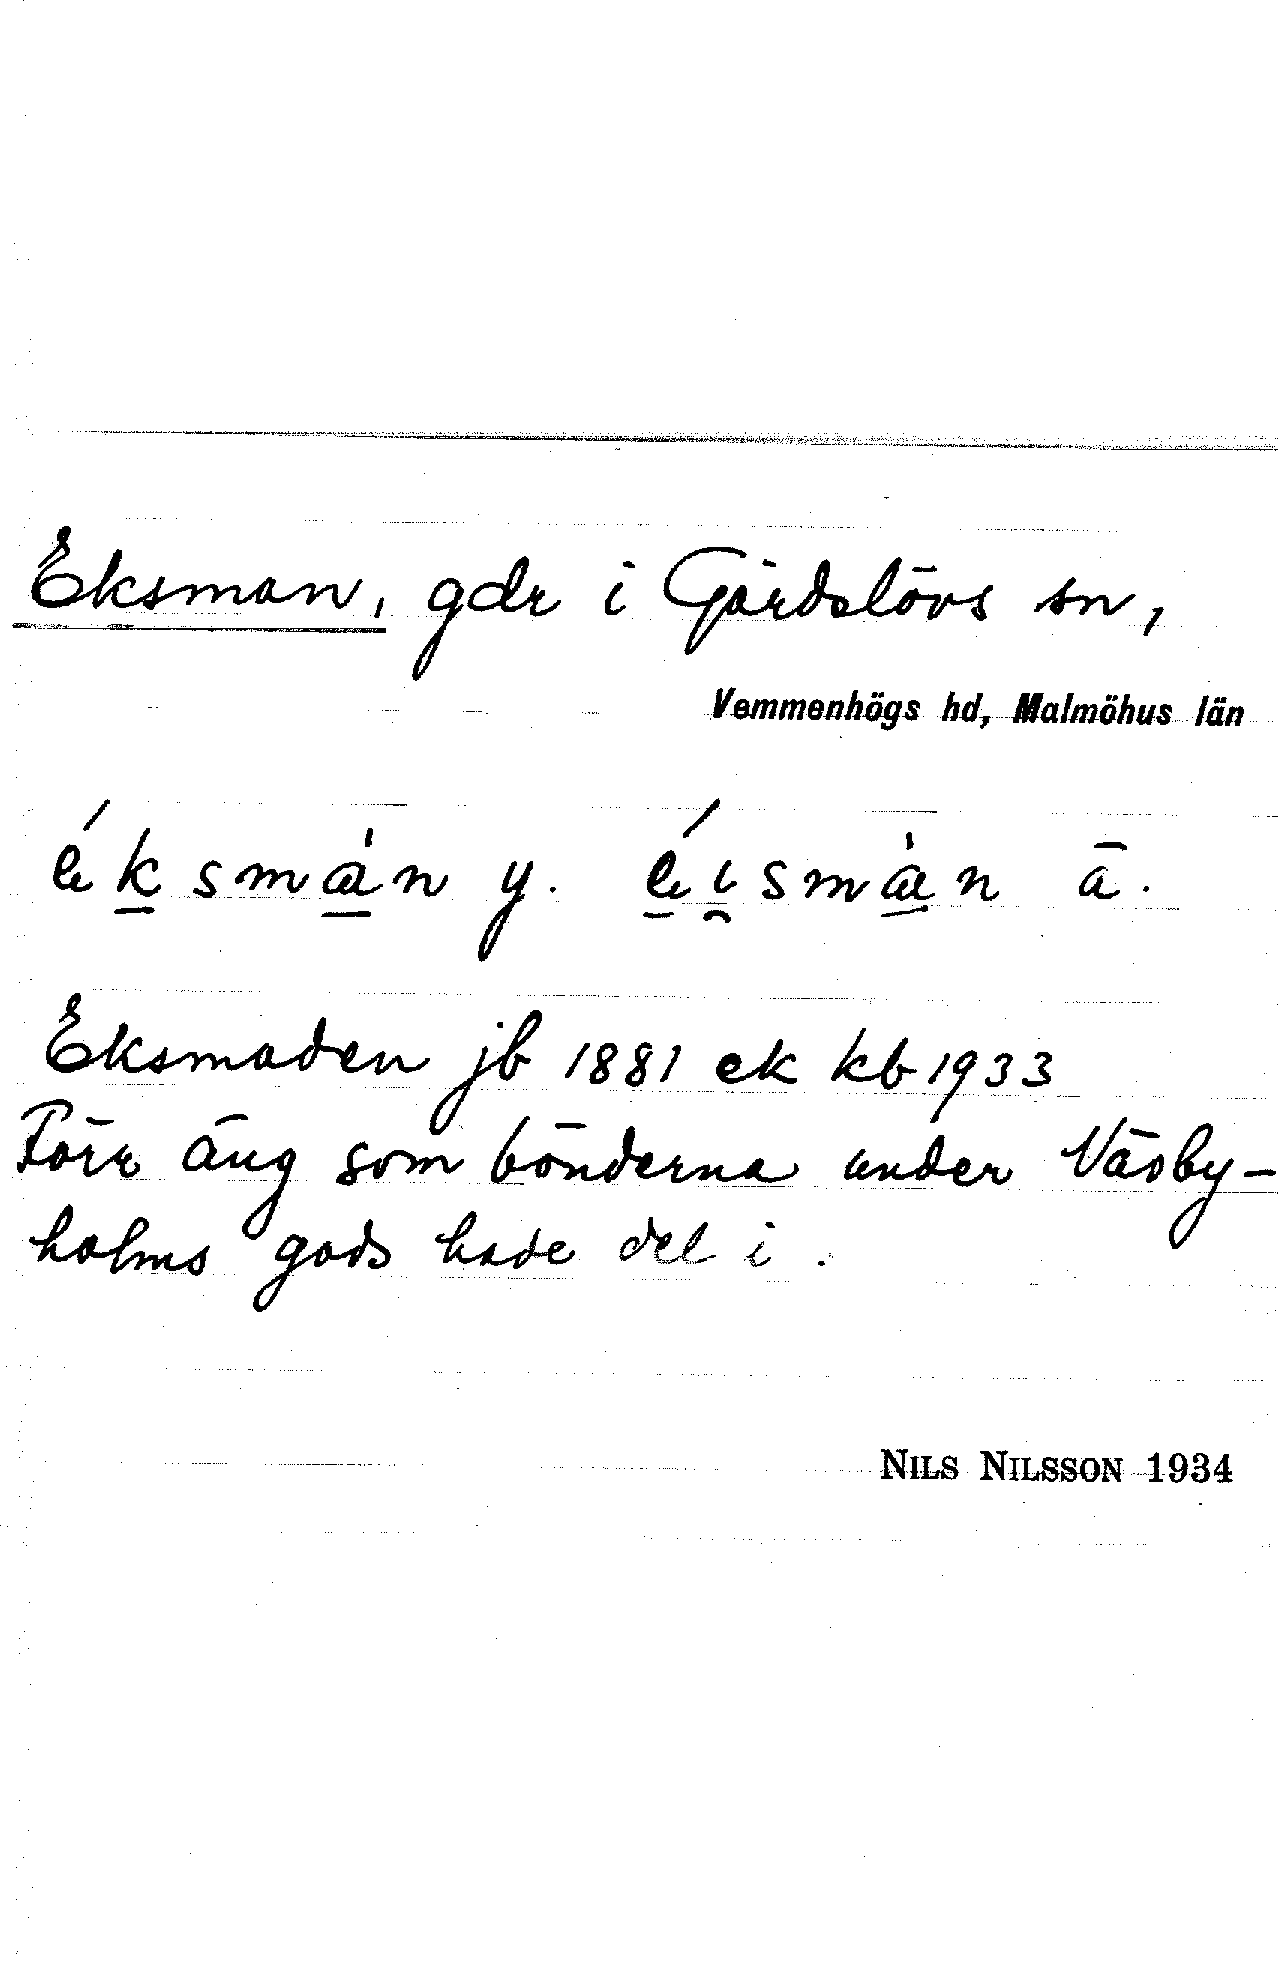 Eksman, gdr i Gärdslövs sn,
Vemmenhögs hd, Malmöhus län
éksmàn y. éi̯smàn ä.
Eksmaden jb 1881 ek kb 1933
Förr äng som bönderna under Näsby-
holms gods hade del i.
NILS NILSSON 1934